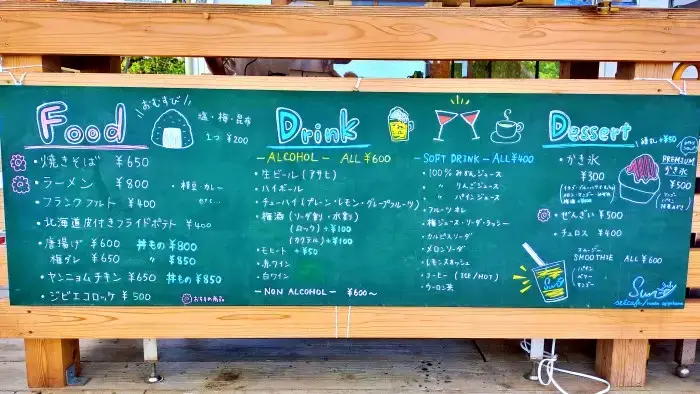 Food
おむすび
塩・梅・昆布
1つ ¥200
・焼きそば ¥650
・ラーメン ¥800
・枝豆・カレー
・フランクフルト ¥400
・北海道皮付きフライドポテト ¥400
・唐揚げ ¥600 丼もの ¥800
塩ダレ ¥650 〃 ¥850
・ヤンニョムチキン ¥650 丼もの ¥850
・ジビエコロッケ ¥500
おすすめ商品
Drink
-ALCOHOL- ALL ¥600
・生ビール(アサヒ)
・ハイボール
・チューハイ(プレーン・レモン・グレープフルーツ)
・梅酒(ソーダ割・水割)
(ロック)+¥100
(カクテル)+¥100
・モヒート +¥50
・赤ワイン
・白ワイン
-NON ALCOHOL- ¥600~
-SOFT DRINK- ALL ¥400
・100%みかんジュース
・〃 りんごジュース
・〃 パインジュース
・フルーツオレ
・梅ジュース・ソーダ・ラッシー
・カルピスソーダ
・メロンソーダ
・レモンスカッシュ
・コーヒー(ICE/HOT)
・ウーロン茶
Dessert
練乳 +¥50
・かき氷
¥300
PREMIUM
かき氷
¥500
・ぜんざい ¥500
・チュロス ¥400
スムージー
SMOOTHIE ALL ¥600
・パイン
・ベリー
・マンゴー
Sun